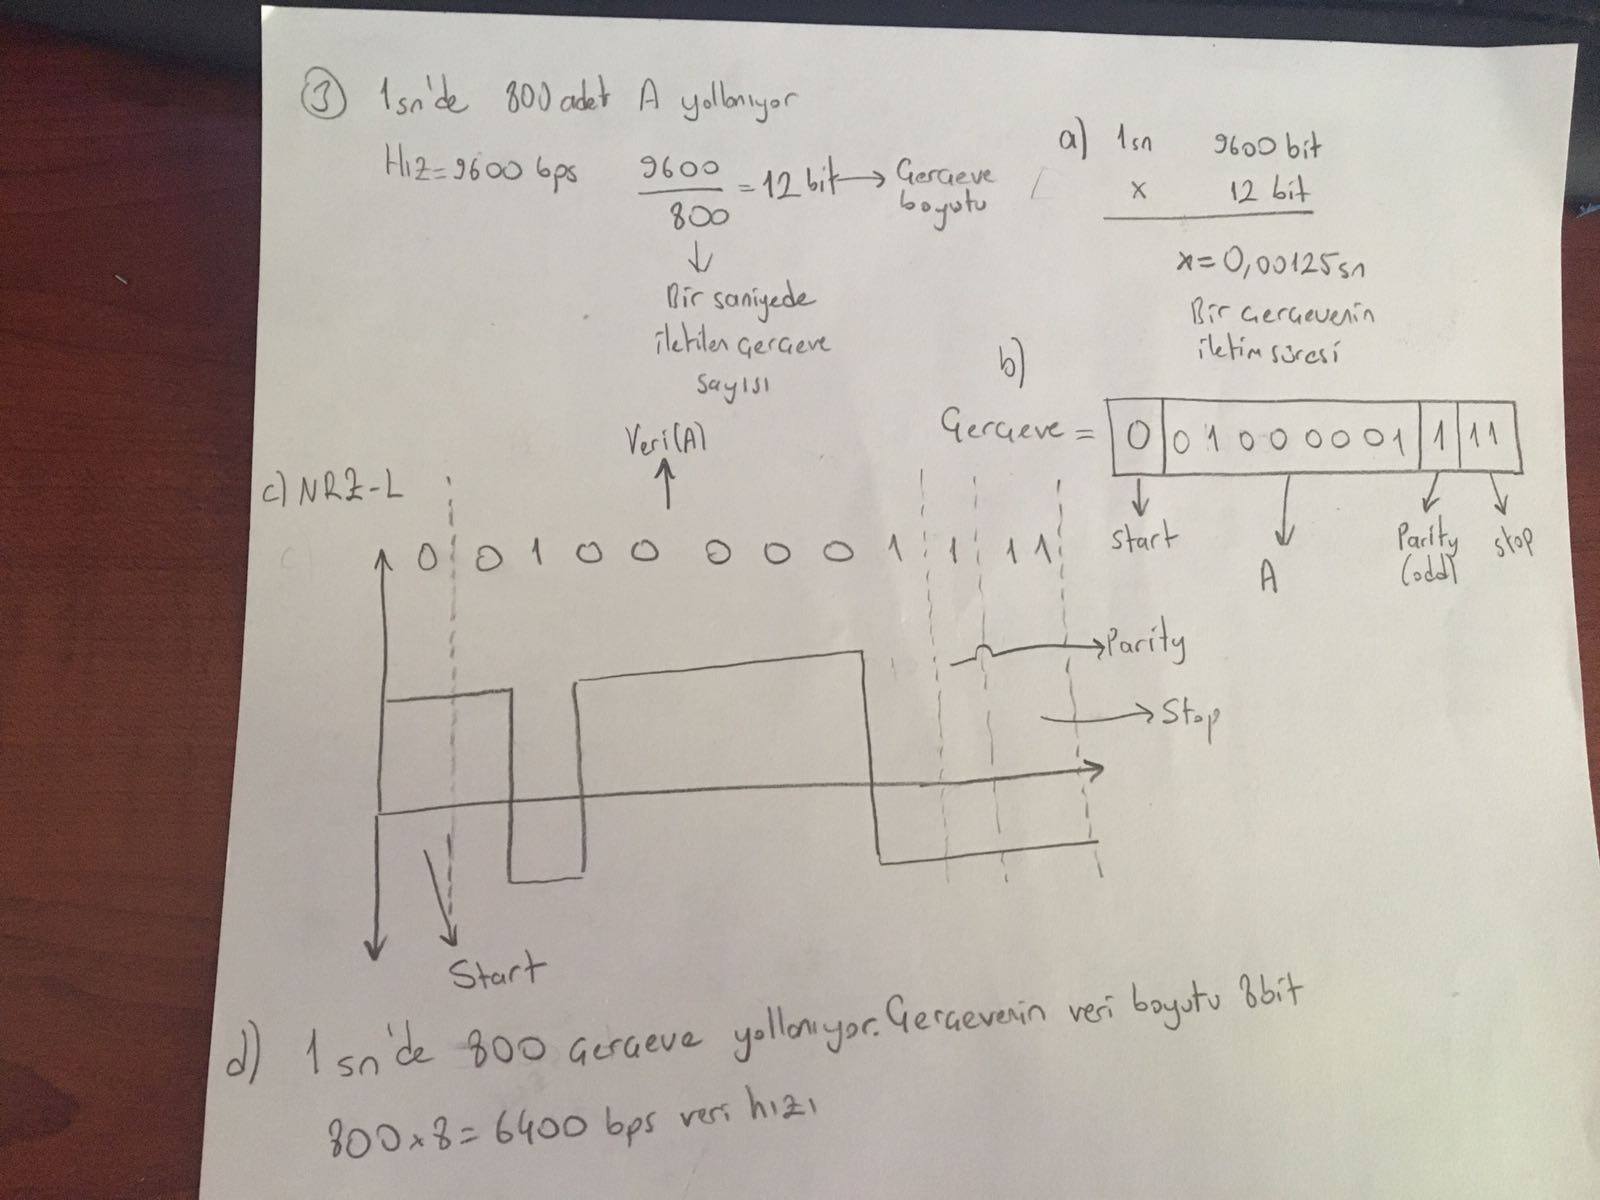 ③ 1sn'de 800 adet A yollanıyor
Hız=9600 bps 9600/800 = 12 bit → Gerçeve boyutu
↓
Bir saniyede
iletilen çerçeve
sayısı
a) 1sn 9600 bit
x 12 bit
x=0,00125sn
Bir çerçevenin
iletim süresi
b)
Çerçeve = 0 01000001 1 11
Start
A
Parity
(odd)
stop
c) NRZ-L
Veri(A)
0 0 1 0 0 0 0 0 1 1 1 1
Parity
Stop
Start
d) 1 sn'de 800 çerçeve yollanıyor. Çerçevenin veri boyutu 8bit
800x8= 6400 bps veri hızı